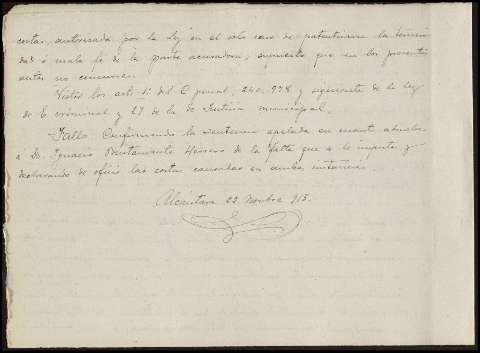 costas, autorizada por la ley en el solo caso de patentizarse la temeri-
dad ó mala fé de la parte acusadora; supuesto que en los presentes
autos no concurre.
Vistos los arts 1º del C. penal; 240, 978 y siguiente de la ley
de E. criminal y 27 de la de Justicia municipal.
Fallo: Confirmando la sentencia apelada en cuanto absuelve
á D. Ignacio Bustamante Herrero de la falta que se le imputa y
declarando de oficio las costas causadas en ambas instancias.
Alcántara 22 Novbre 915.